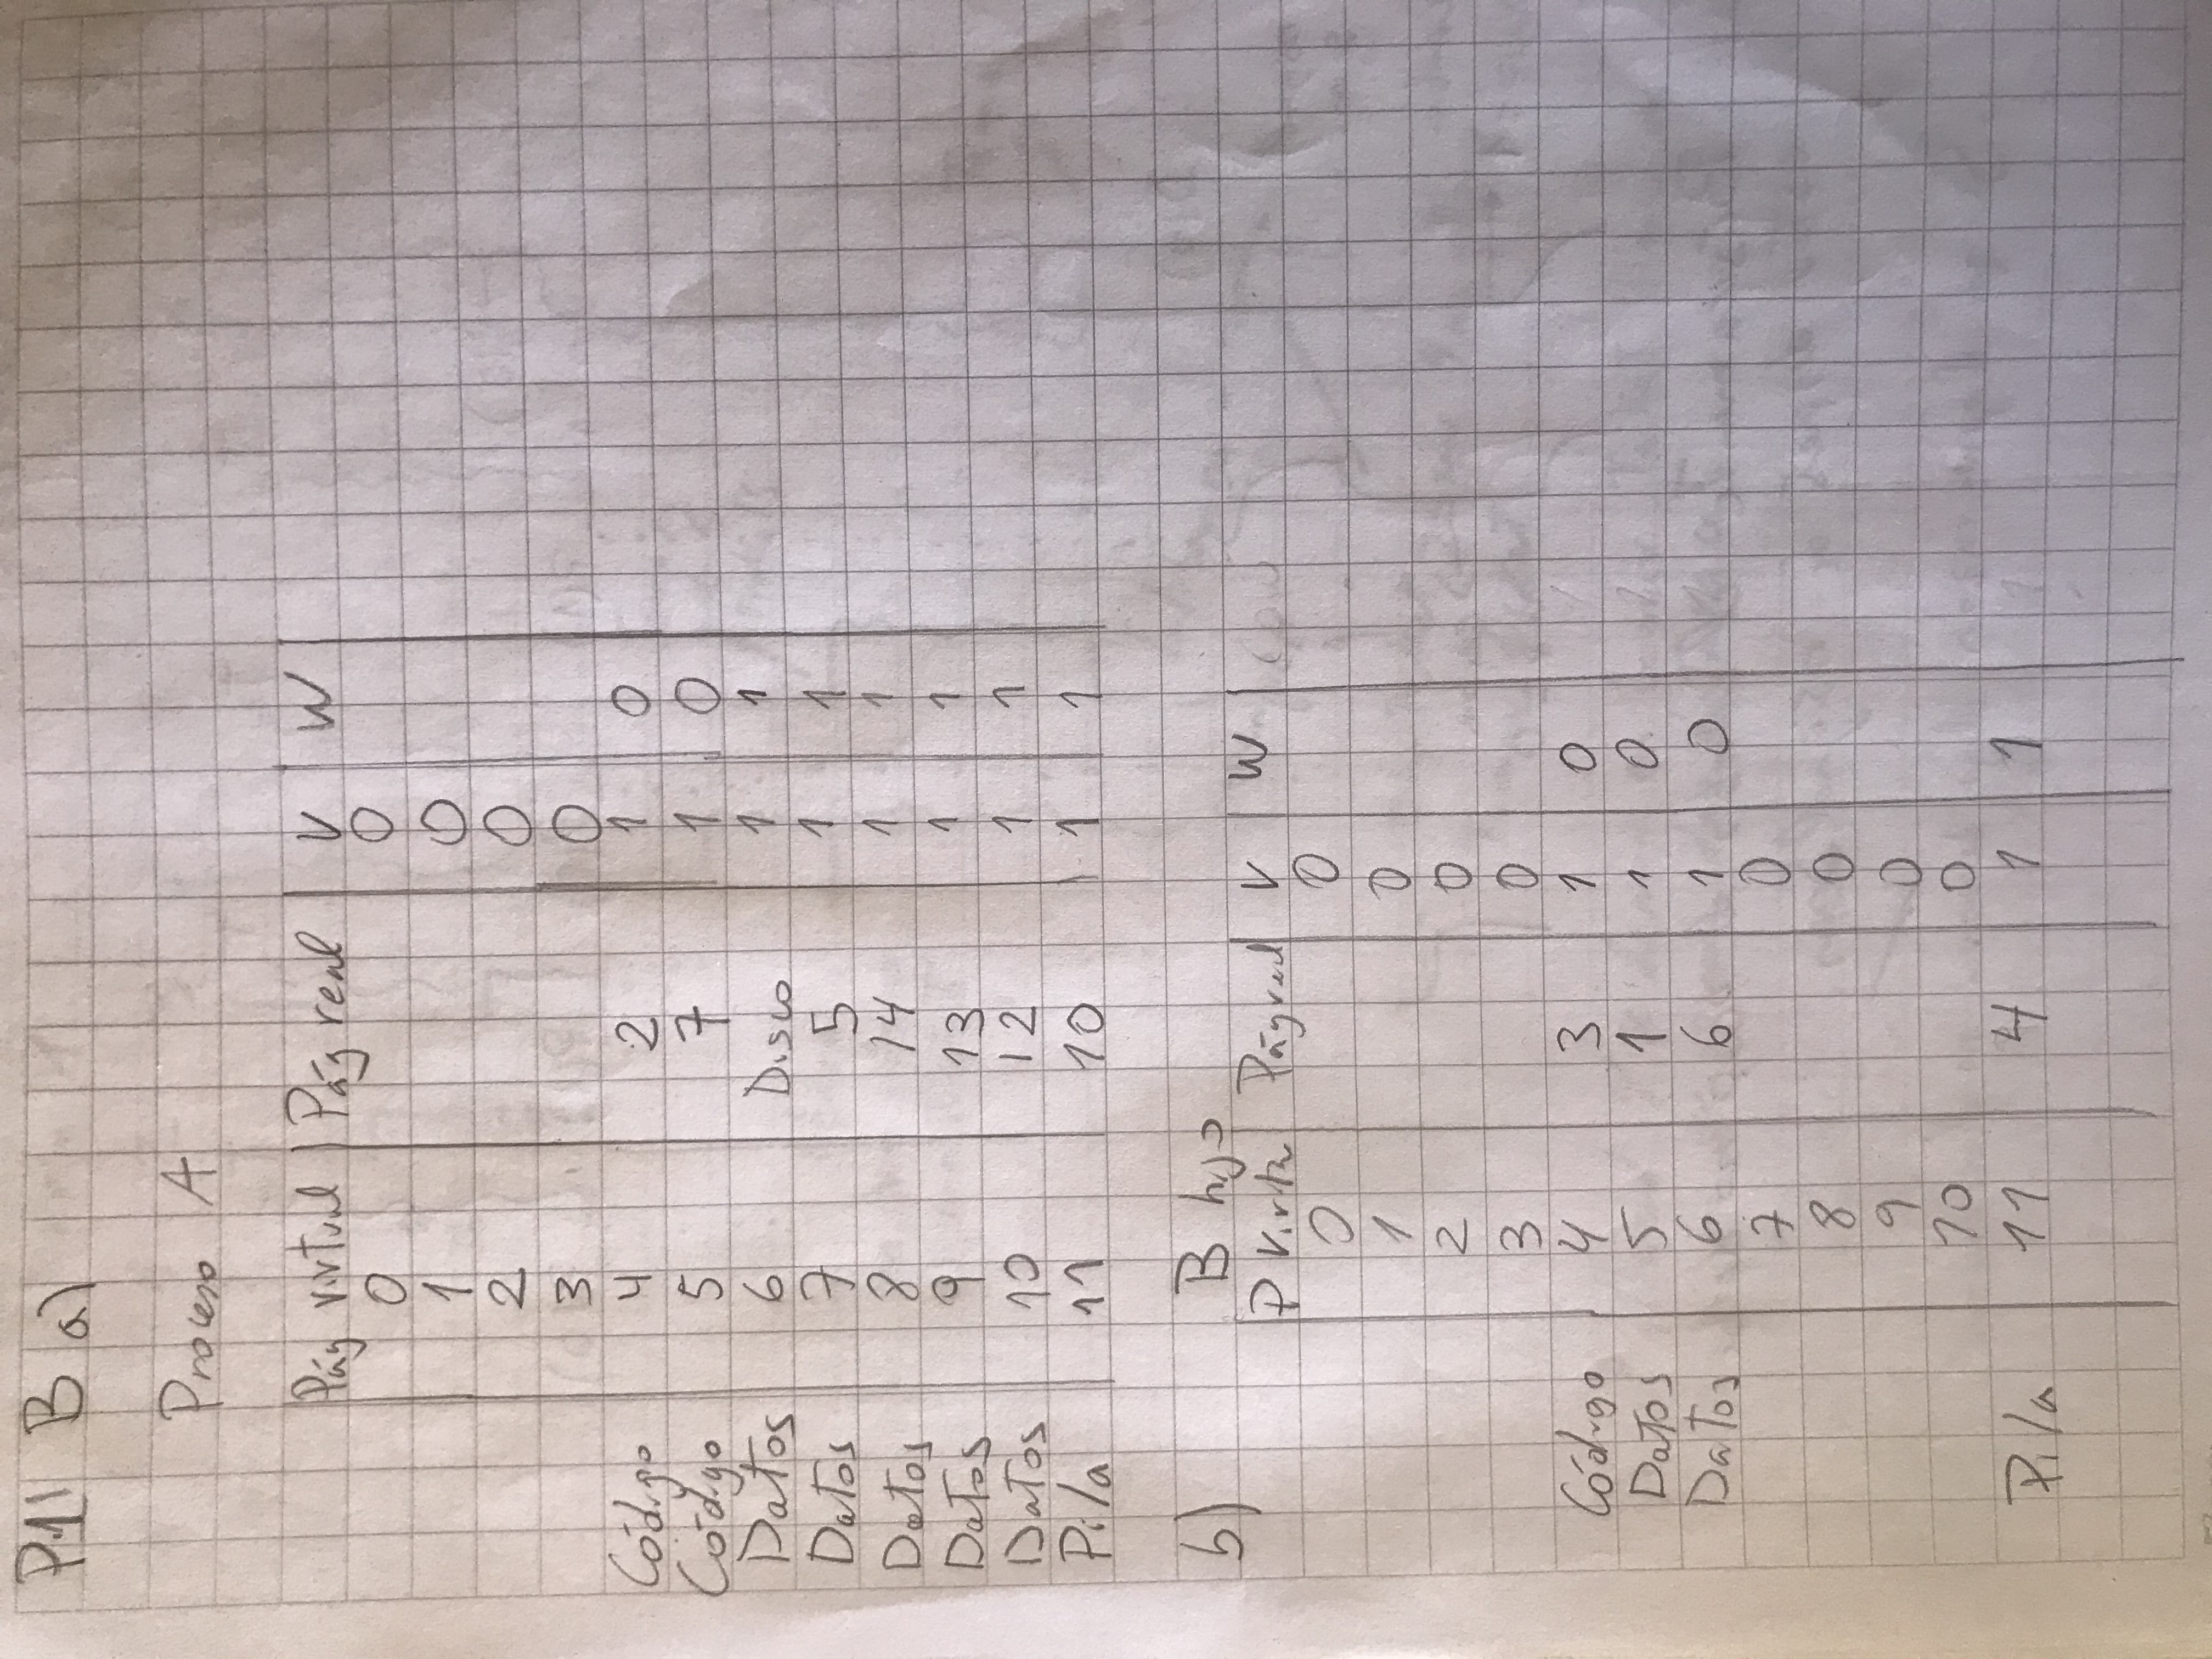 P1| B a)
Proceso A
Pág virtual | Pág real | V | W
0 0
1 0
2 0
3 0
Código 4 2 1 0
Código 5 7 1 0
Datos 6 Disco 1 1
Datos 7 5 1 1
Datos 8 14 1 1
Datos 9 13 1 1
Datos 10 12 1 1
Pila 11 10 1 1
b) B hijo
P Virtu Pág real V W
0 0
1 0
2 0
3 0
Código 4 3 1 0
Datos 5 1 1 0
Datos 6 6 1 0
7 0
8 0
9 0
10 0
Pila 11 4 1 1